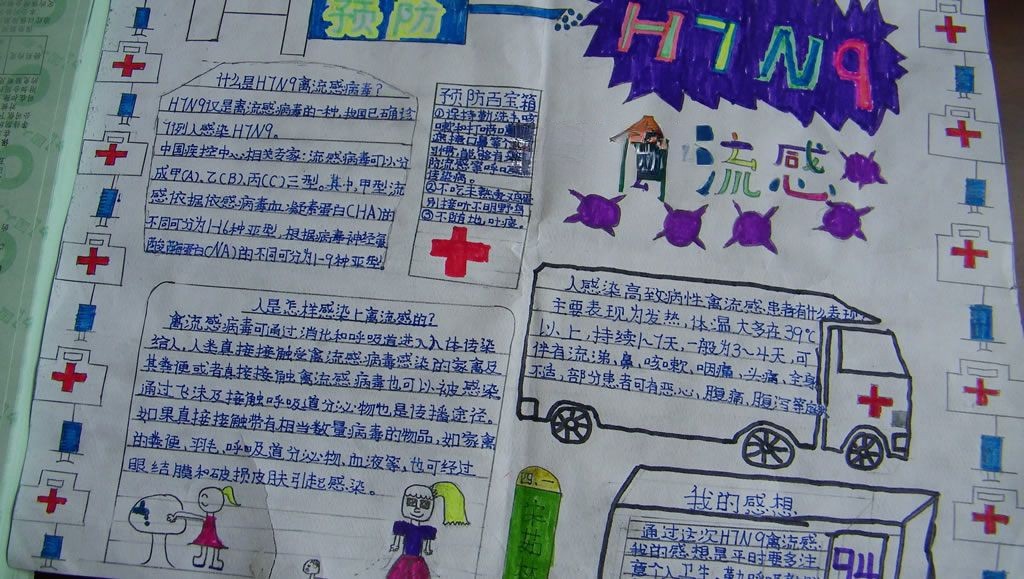 预防
H7N9
流感
什么是H7N9禽流感病毒?
H7N9仅是禽流感病毒的一种,我国已确诊
7例人感染H7N9。
中国疾控中心相关专家:流感病毒可以分
成甲(A)、乙(B)、丙(C)三型。其中,甲型流
感依据依感病毒血凝素蛋白(HA)的
不同可分为1-16种亚型,根据病毒神经氨
酸酶蛋白(NA)的不同可分为1-9种亚型。
预防百宝箱
①保持勤洗手
②不吃未熟
别接吵不明野鸟
③不随地吐痰。
人是怎样感染上禽流感的?
禽流感病毒可通过消化和呼吸道进入人体传染
给人,人类直接接触受禽流感病毒感染的家禽及
其粪便或者直接接触禽流感病毒也可以被感染。
通过飞沫及接触呼吸道分泌物也是传播途径。
如果直接接触带有相当数量病毒的物品,如家禽
的粪便、羽毛、呼吸道分泌物、血液等,也可经过
眼结膜和破损皮肤引起感染。
人感染高致病性禽流感患者有什么表现
主要表现为发热,体温大多在39℃
以上,持续1~7天,一般为3~4天,可
伴有流涕、鼻、咳嗽、咽痛、头痛、全身
不适,部分患者可有恶心、腹痛、腹泻等
四二
我的感想
通过这次H7N9禽流感,
我的感想是平时要多注
意个人卫生,勤